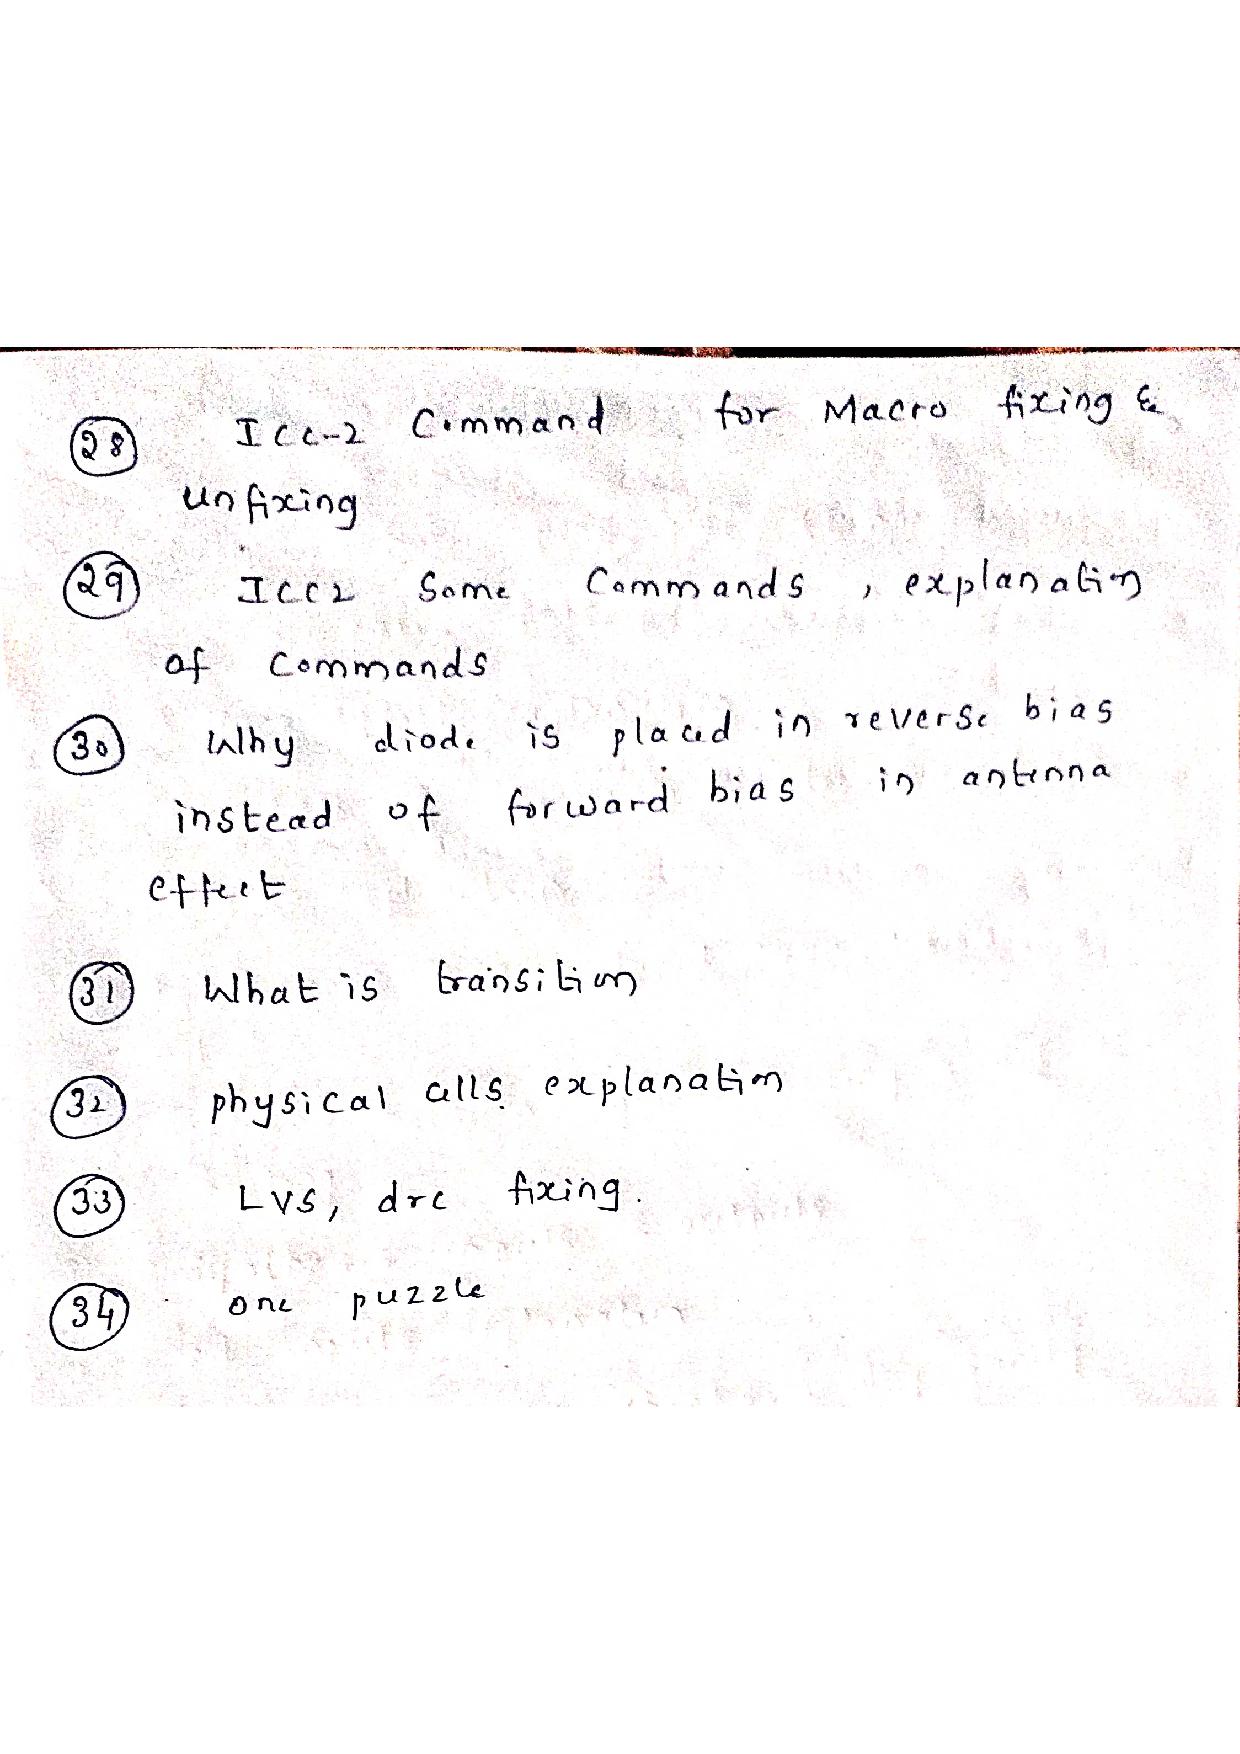 28 Icc-2 Command for Macro fixing &
unfixing
29 ICC2 Some Commands, explanation
of commands
30 Why diode is placed in reverse bias
instead of forward bias in antenna
effect
31 What is transition
32 physical cells explanation
33 LVS, drc fixing.
34 one puzzle